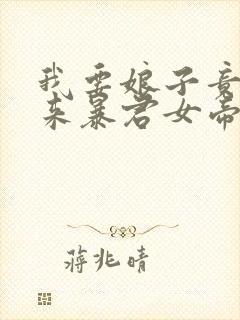 我要娘子竟
来暴君女帝
蒋兆晴